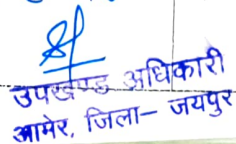 उपखण्ड अधिकारी
आमेर, जिला- जयपुर